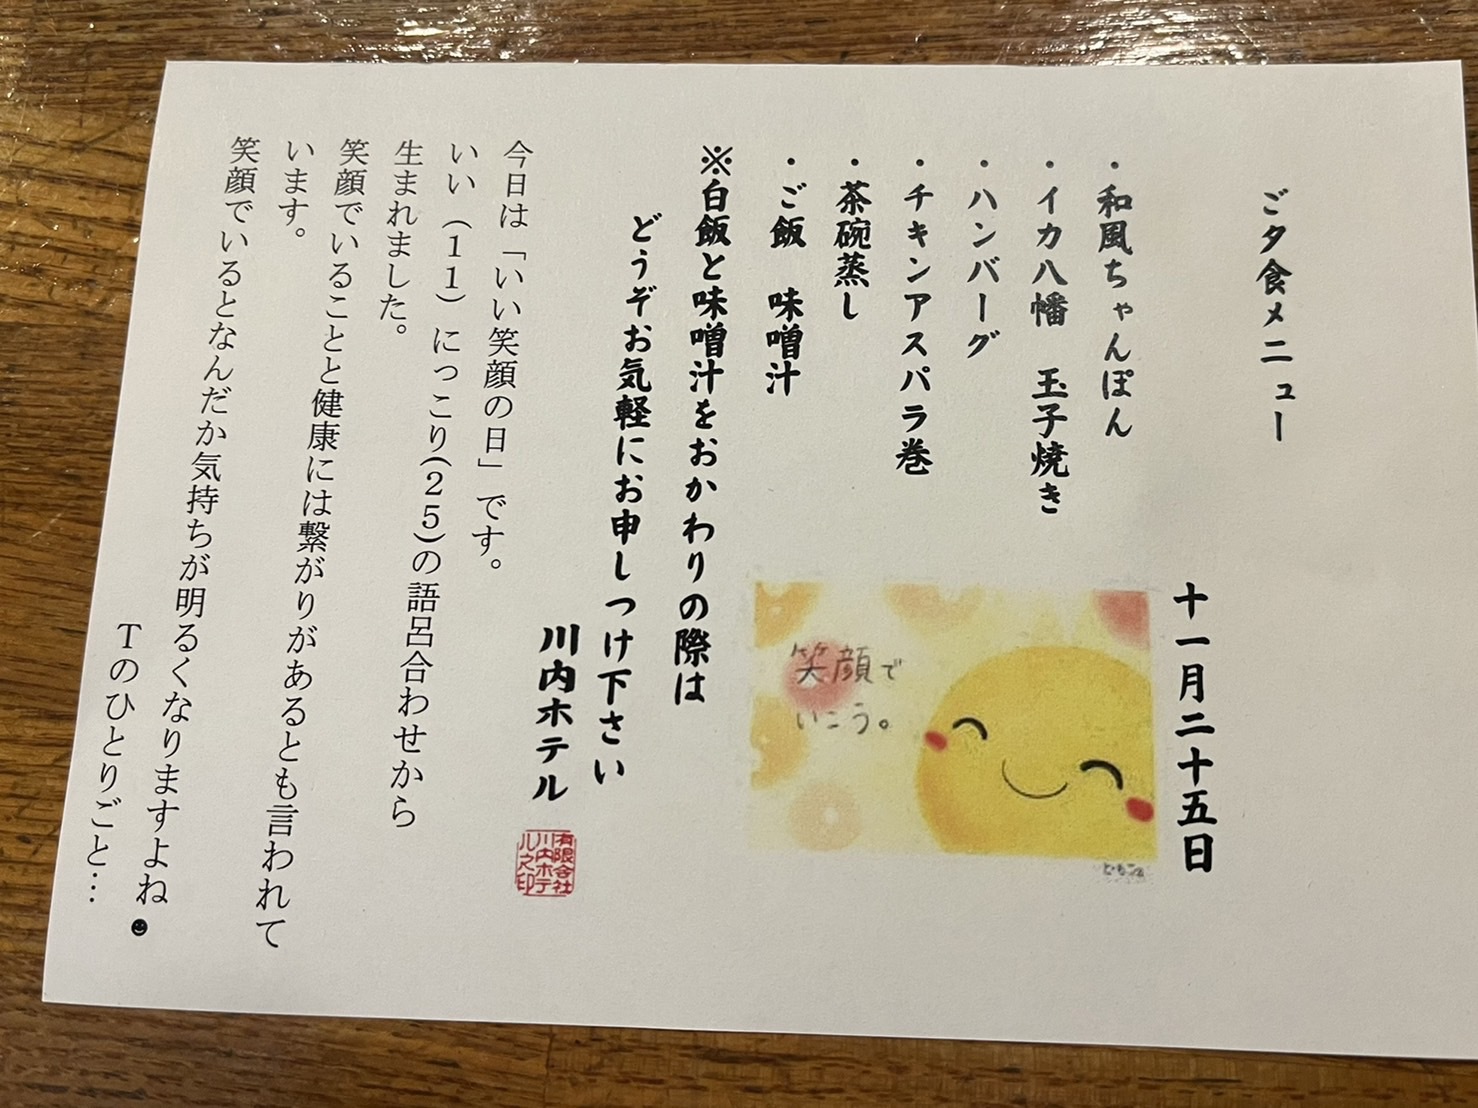 ご夕食メニュー
十一月二十五日
・和風ちゃんぽん
・イカ八幡　玉子焼き
・ハンバーグ
・チキンアスパラ巻
・茶碗蒸し
・ご飯　味噌汁
※白飯と味噌汁をおかわりの際は
どうぞお気軽にお申しつけ下さい
川内ホテル
有限会社
川内ホテ
ル之印
笑顔で
いこう。
今日は「いい笑顔の日」です。
いい（11）にっこり(25)の語呂合わせから
生まれました。
笑顔でいることと健康には繋がりがあるとも言われて
います。
笑顔でいるとなんだか気持ちが明るくなりますよね☻
Tのひとりごと…